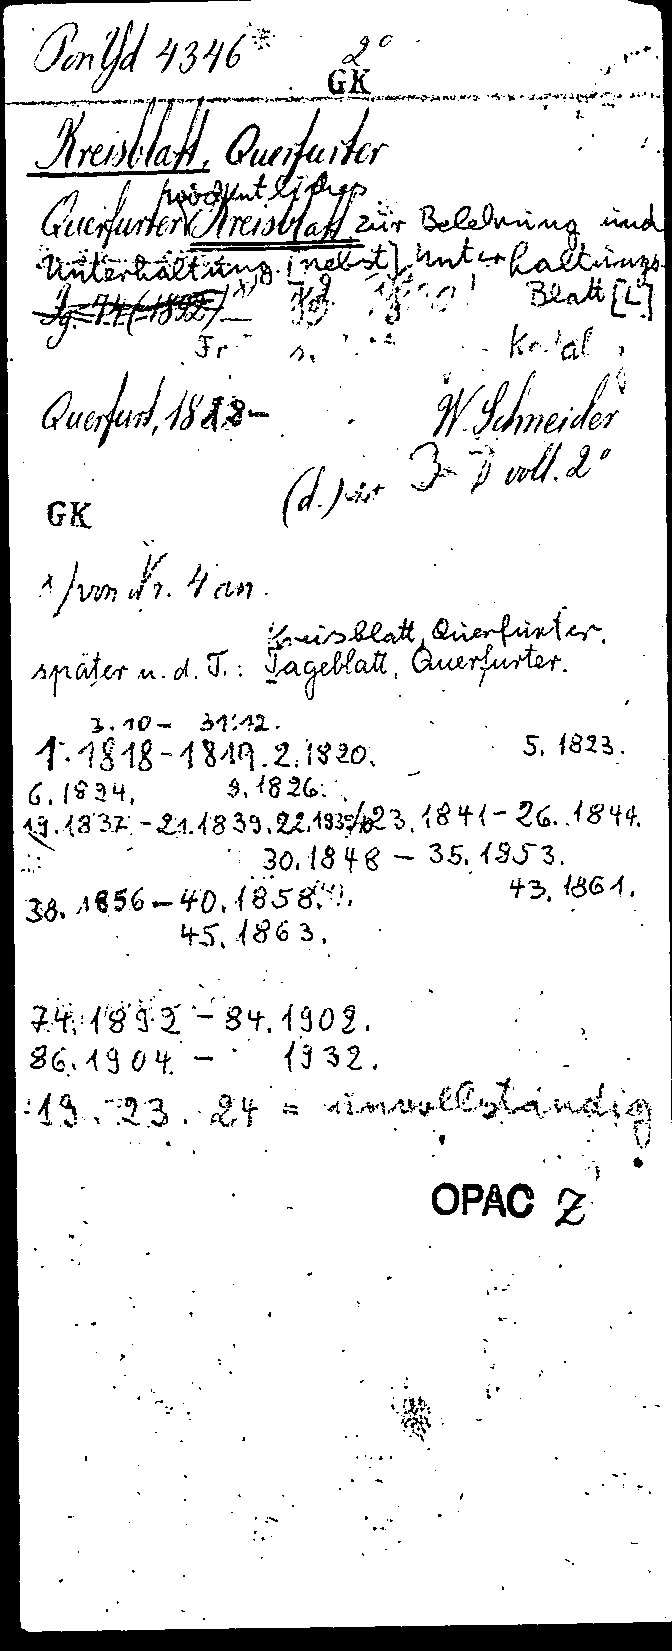 Pon Yd 4346 2°
GK
Kreisblatt, Querfurter
wöchentliches
Querfurter Kreisblatt zur Belehrung und
Unterhaltung. [nebst] Unterhaltungs-
Jg. 74 (1892) x) Blatt [L]
Querfurt, 1818- W. Schneider
(d.) 2°
GK
x/ von Nr. 4 an.
Kreisblatt, Querfurter.
später u. d. T.: Tageblatt, Querfurter.
3.10 - 31.12.
1.1818-1819. 2.1820. 5.1823.
6.1824. 9.1826.
19.1837-21.1839. 22. 23.1841-26.1844.
30.1848-35.1853.
38.1856-40.1858. 43.1861.
45.1863.
74.1892-84.1902.
86.1904 - 1932.
19. 23. 24 = unvollständig
OPAC Z